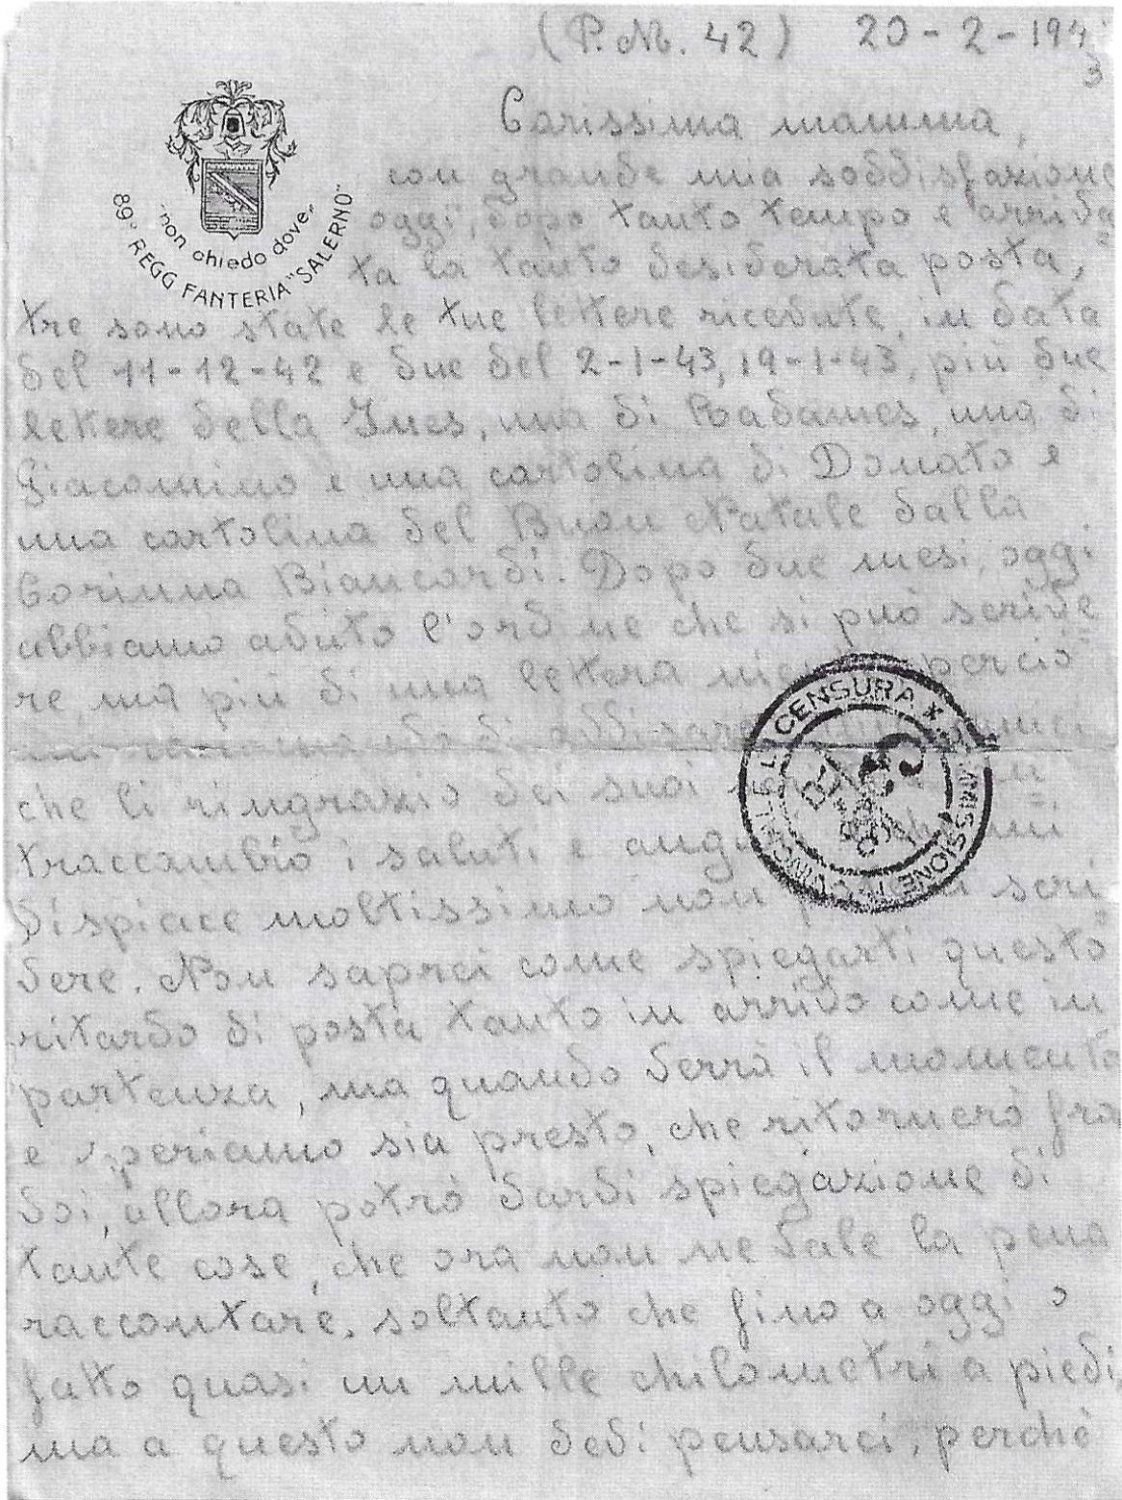 (P.M. 42) 20-2-194
3
Carissima mamma,
con grande mia soddisfazione
oggi, dopo tanto tempo e arriva=
ta la tanto desiderata posta,
"non chiedo dove"
89° REGG FANTERIA "SALERNO"
tre sono state le tue lettere ricevute, in data
del 11-12-42 e due del 2-1-43, 19-1-43, più due
lettere della Ines, una di Radames, una di
Giacomino e una cartolina di Donato e
una cartolina del Buon Natale dalla
Corinna Biancardi. Dopo due mesi, oggi
abbiamo avuto l'ord ne che si può scrive=
re, ma più di una lettera perciò
che li ringrazio dei suoi
traccambio i saluti e mi
dispiace moltissimo non scri=
vere. Non saprei come spiegarti questo
ritardo di posta tanto in arrivo come in
partenza, ma quando verrà il momento
e speriamo sia presto, che ritornerò fra
voi, allora potrò darvi spiegazione di
tante cose, che ora non ne vale la pena
raccontare, soltanto che fino a oggi o
fatto quasi un mille chilometri a piedi,
ma a questo non devi pensarci, perchè
CENSURA
COMMISSIONE PROVINCIALE DI